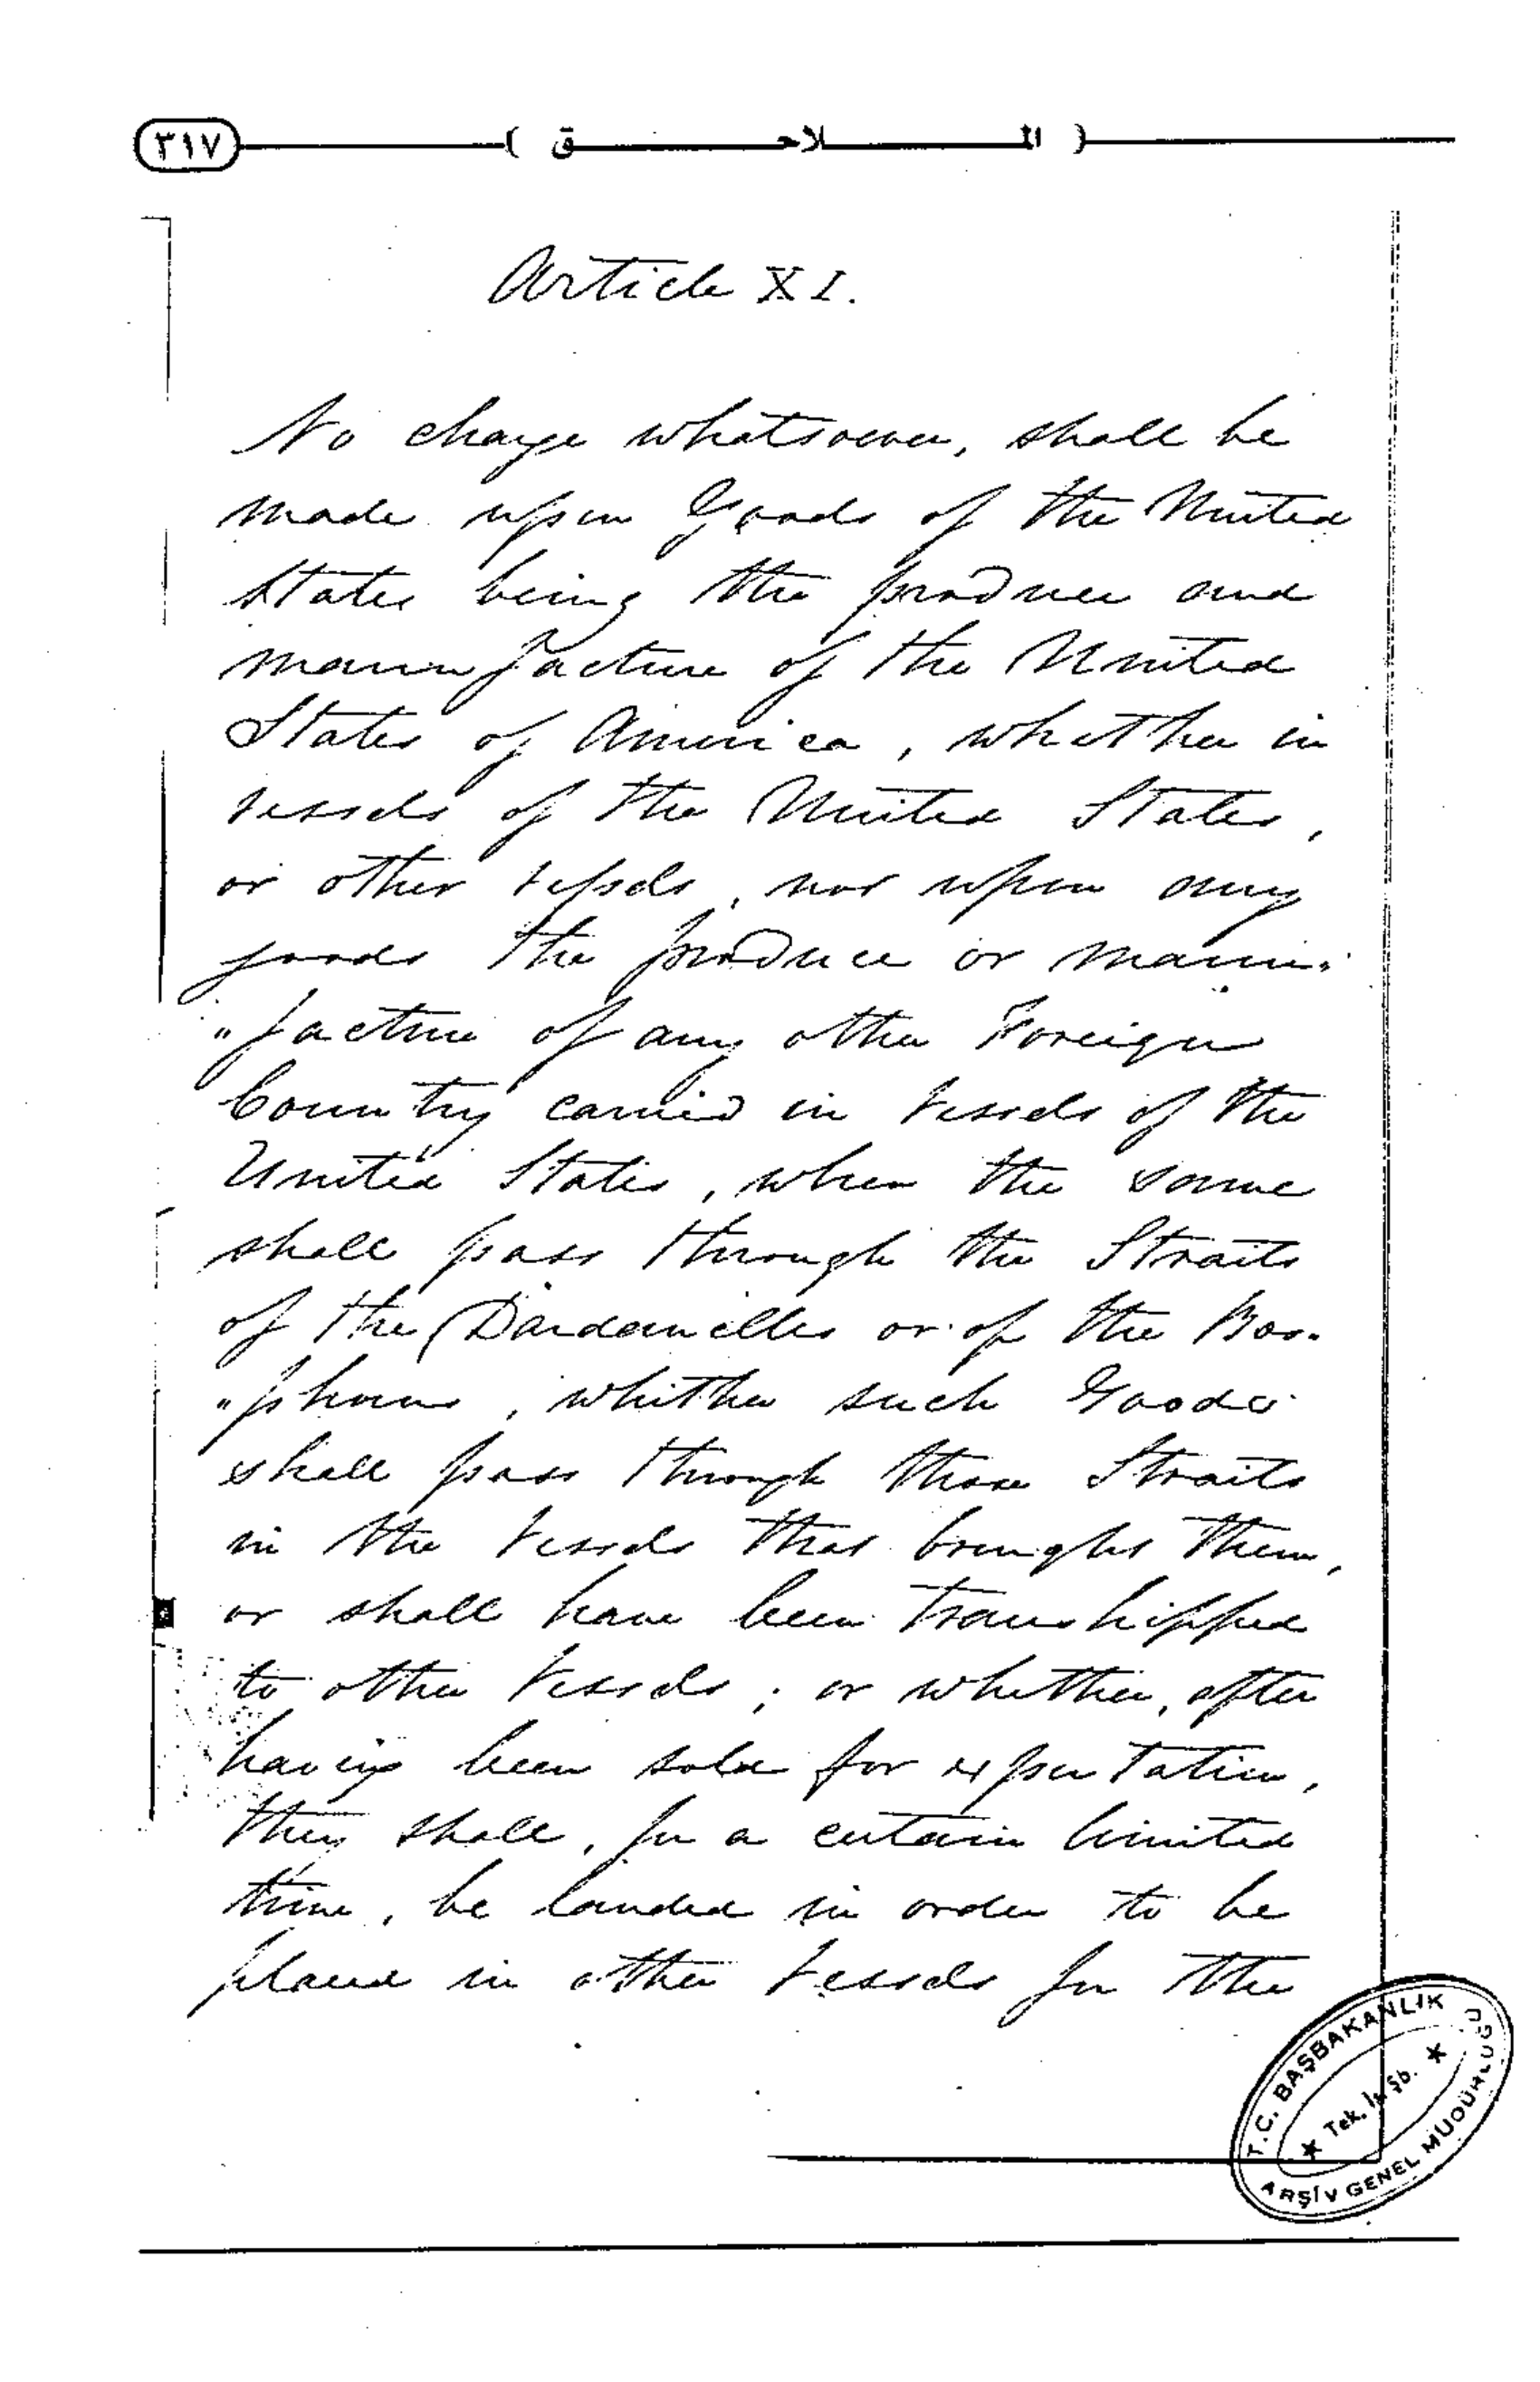 ٣١٧
( الملاحق )
Article XI.
No charge whatsoever, shall be
made upon Goods of the United
States being the produce and
manufacture of the United
States of America, whether in
vessels of the United States,
or other vessels, nor upon any
goods the produce or manu-
"facture of any other Foreign
Country carried in vessels of the
United States, when the same
shall pass through the Straits
of the Dardanelles or of the Bos-
"phorus, whither such Goods
shall pass through those Straits
in the vessels that brought them,
or shall have been transhipped
to other vessels; or whether, after
having been sold for exportation,
they shall, for a certain limited
time, be landed in order to be
placed in other vessels for the
T.C. BAŞBAKANLIK
★ Tek. İş. Şb. ★
ARŞİV GENEL MÜDÜRLÜĞÜ